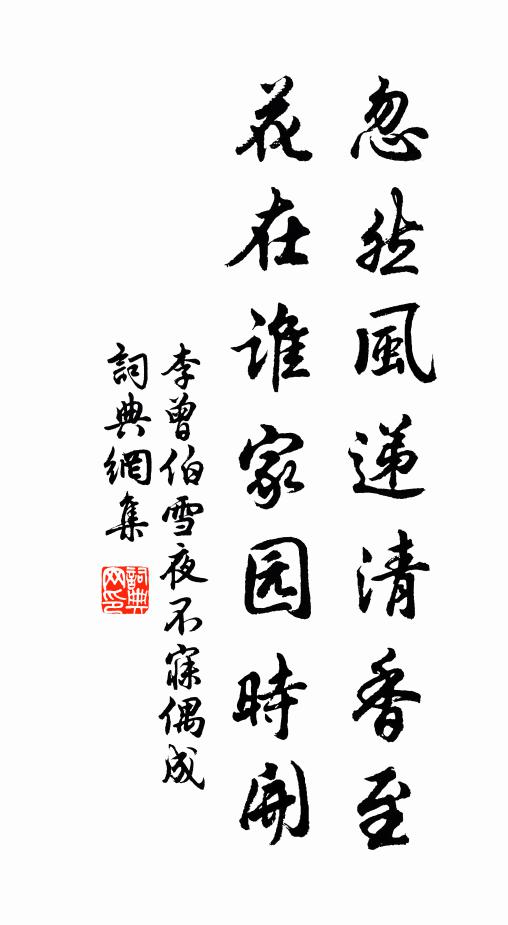 忽然風遞清香至
花在誰家园時開
李曾伯雪夜不寐偶成
詞典網集
詞典网印